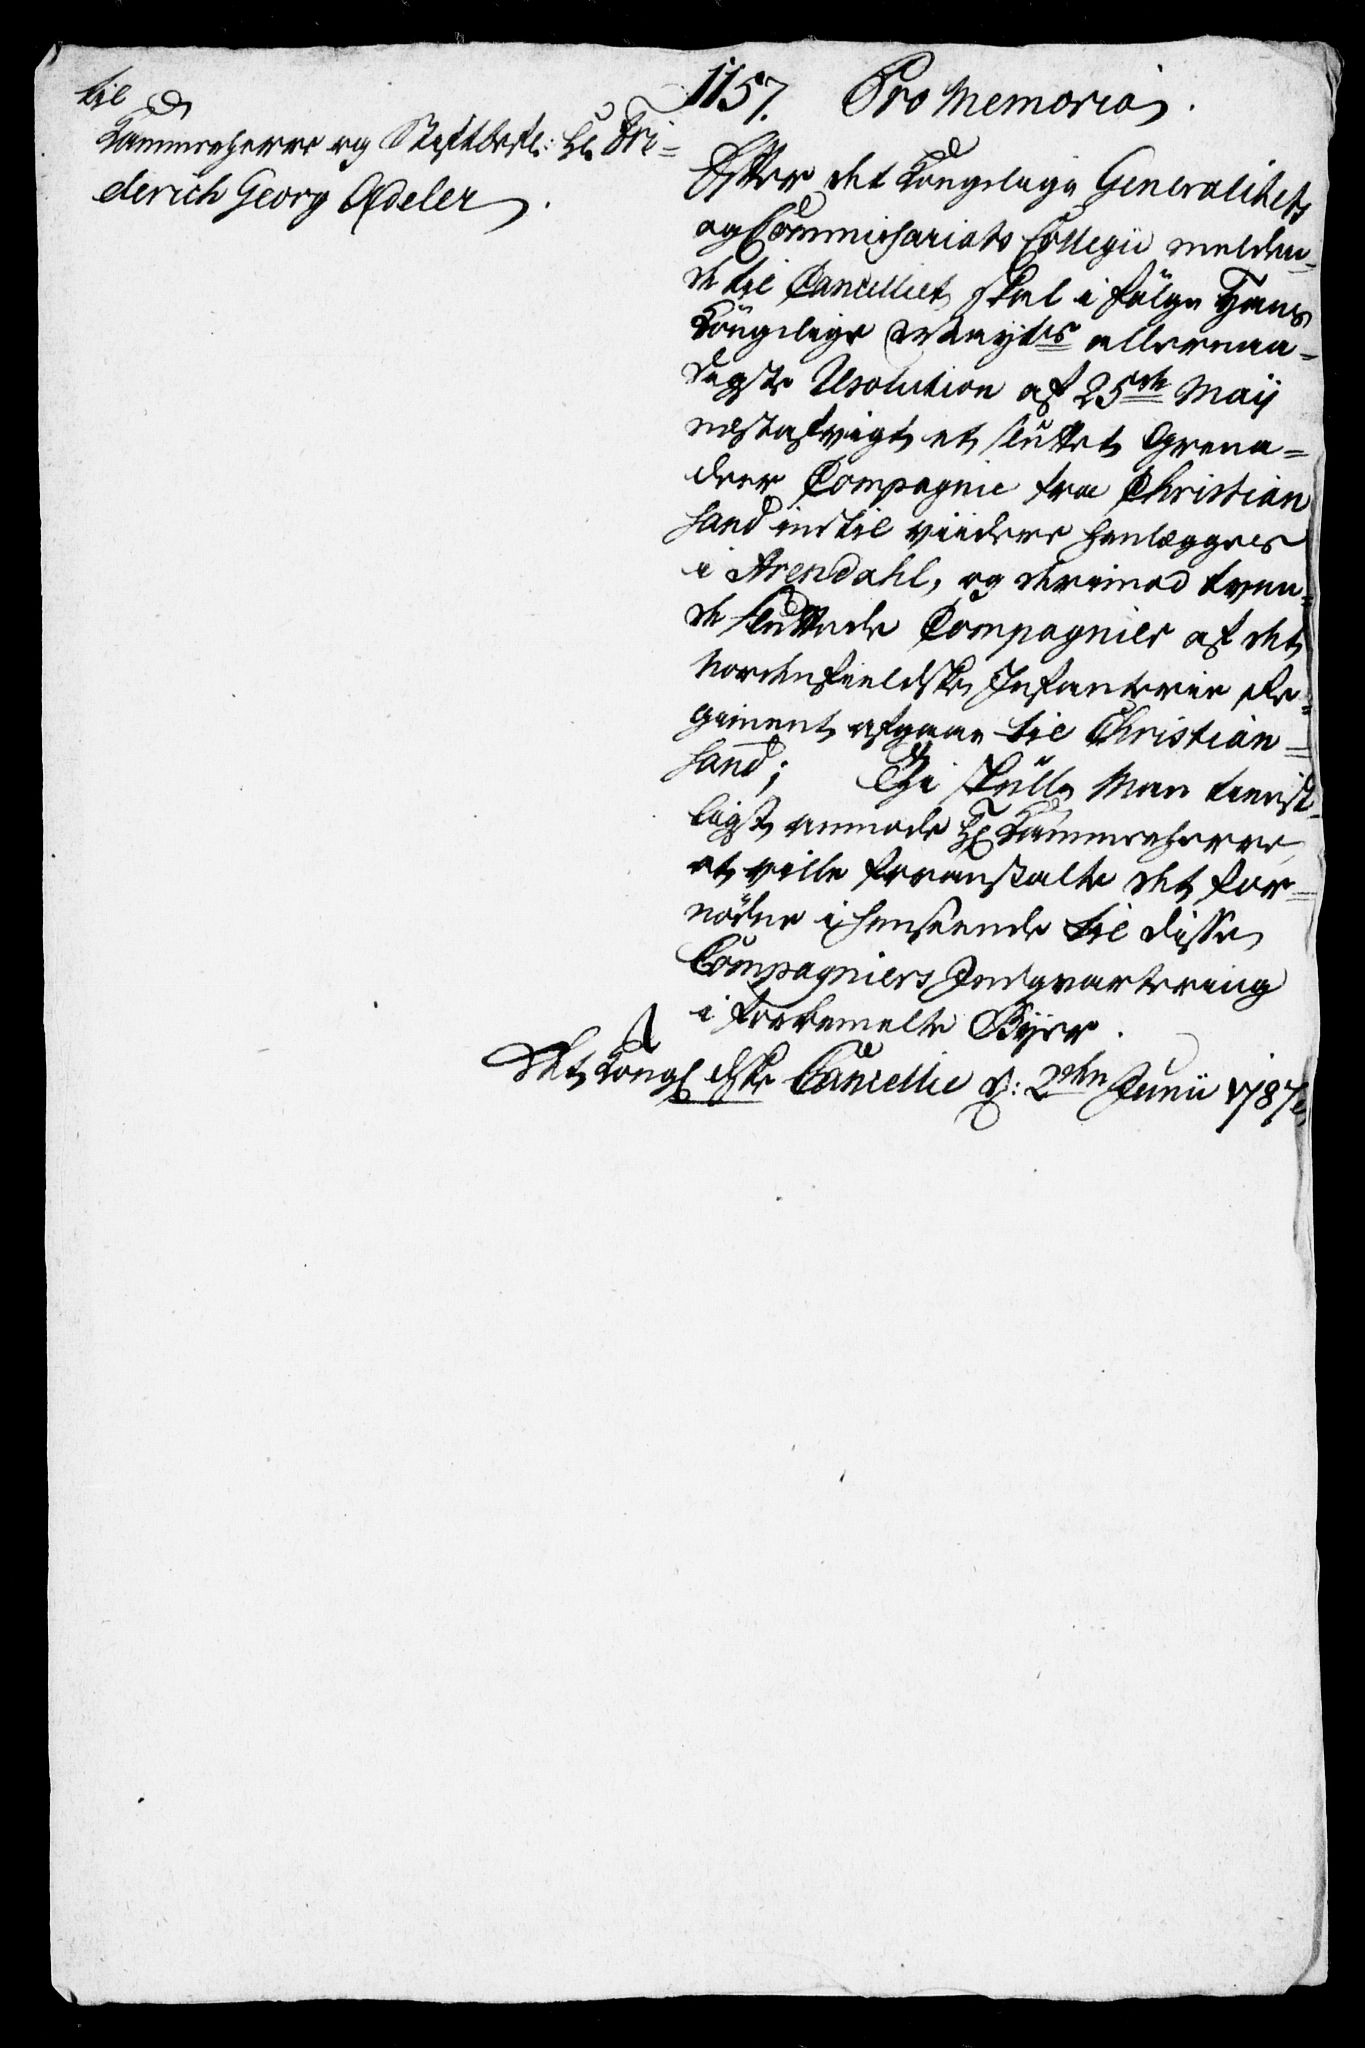 til
Kammerherre og Stiftbefl: Hr. Fri=
derich Georg Adeler.
1157. Pro Memoria.
Efter det Kongelige Generalitets
og Commissariats Collegii melden=
de til Cancelliet, skal i følge Hans
Kongelige Mayts allernaa=
digste Resolution af 25de Maij
nestafvigt, et sluttet Grena=
deer Compagnie fra Christian
sand indtil viidere henlægges
i Arendahl, og derimod tven=
de sluttede Compagnier af det
Nordenfieldske Infanterie Re=
giment afgaae til Christian=
sand; Thi skulle Man tienst=
ligst anmode Hr Kammerherre,
at ville foranstalte det for=
nödne i henseende til disse
Compagniers Indqvartering
i forbemelte Byer.
Det Kongl dske Cancellie d: 2den Junii 1787.